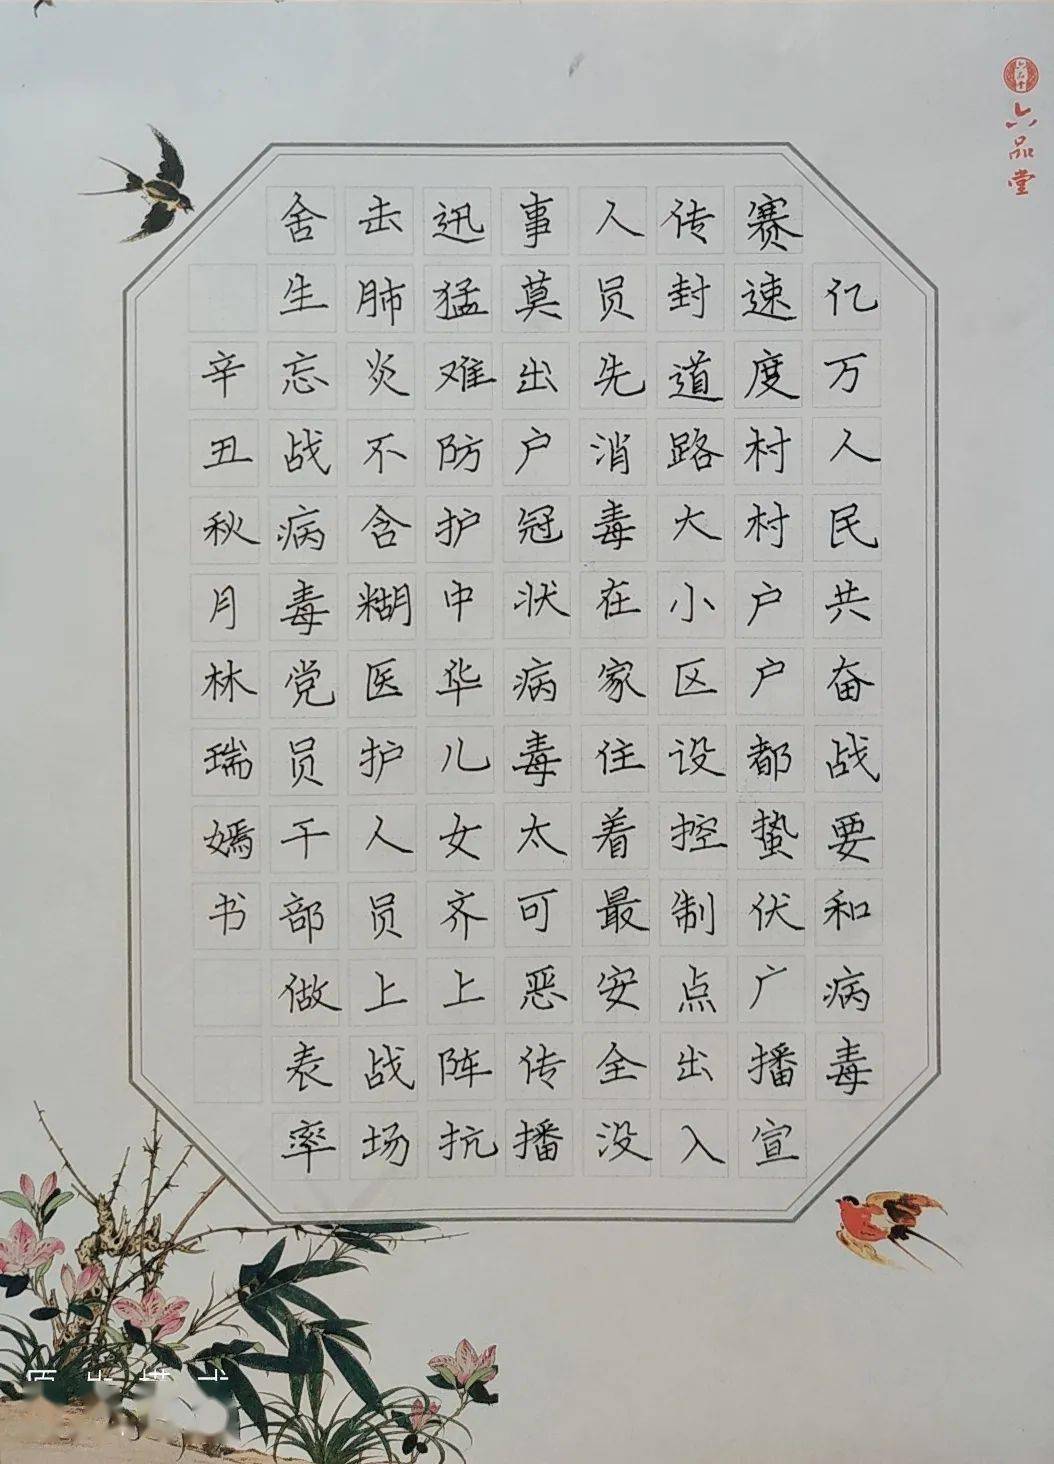 六品堂
六品堂
亿万人民共奋战要和病毒
赛速度村村户户都蛰伏广播宣
传封道路大小区设控制点出入
人员先消毒在家住着最安全没
事莫出户冠状病毒太可恶传播
迅猛难防护中华儿女齐上阵抗
击肺炎不含糊医护人员上战场
舍生忘战病毒党员干部做表率
辛丑秋月林瑞嫣书